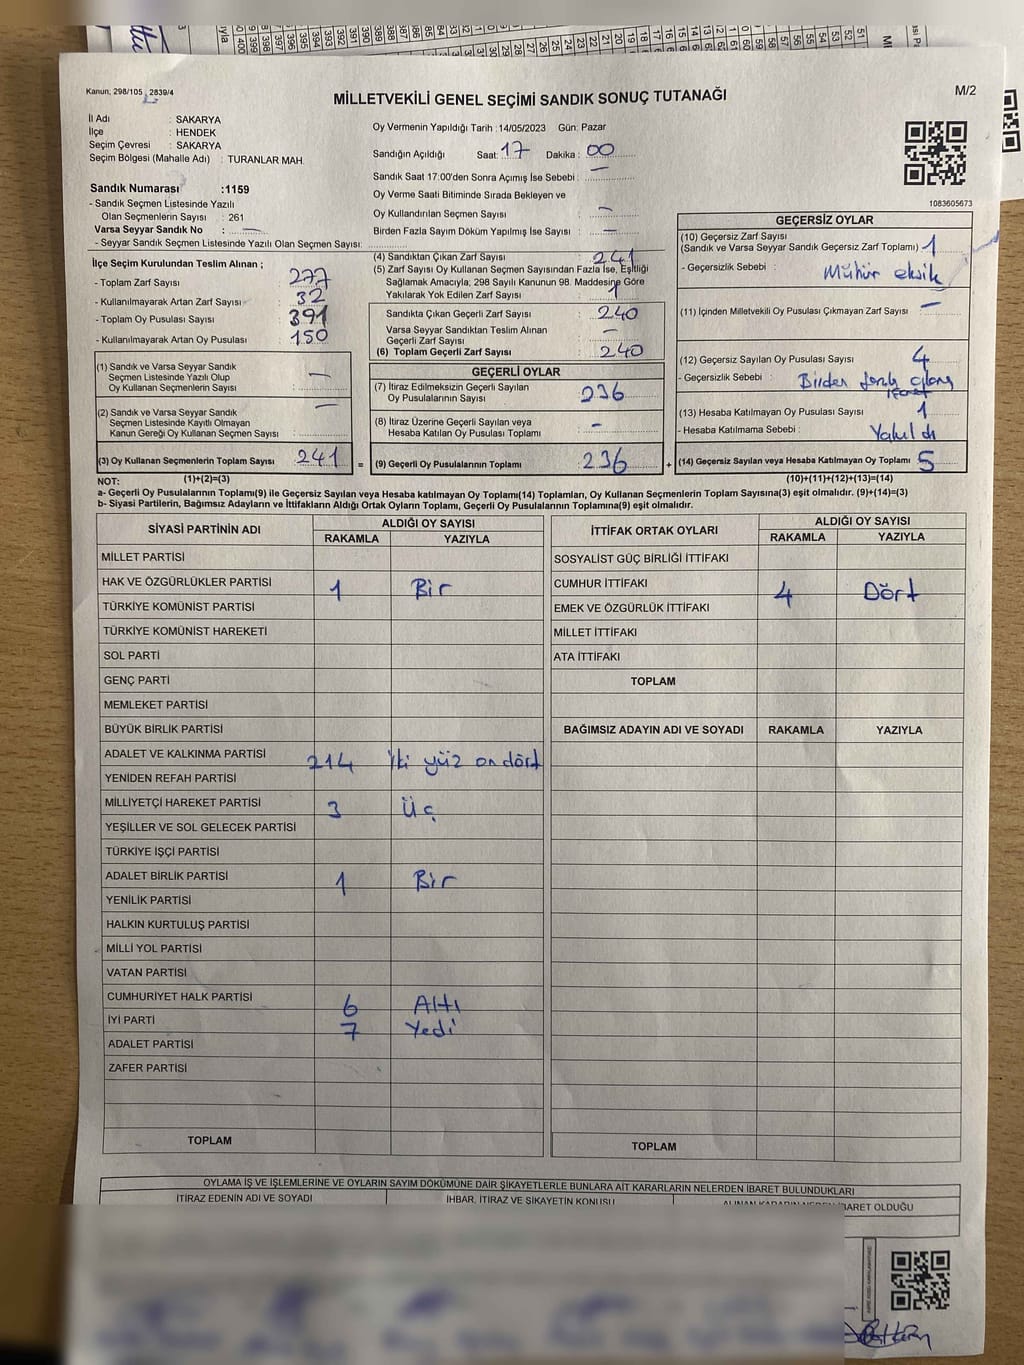 Kanun, 298/105, 2839/4
MİLLETVEKİLİ GENEL SEÇİMİ SANDIK SONUÇ TUTANAĞI
M/2
İl Adı : SAKARYA
İlçe : HENDEK
Seçim Çevresi : SAKARYA
Seçim Bölgesi (Mahalle Adı) : TURANLAR MAH.
Sandık Numarası :1159
- Sandık Seçmen Listesinde Yazılı
Olan Seçmenlerin Sayısı : 261
Varsa Seyyar Sandık No : —
- Seyyar Sandık Seçmen Listesinde Yazılı Olan Seçmen Sayısı:
Oy Vermenin Yapıldığı Tarih :14/05/2023 Gün: Pazar
Sandığın Açıldığı Saat: 17 Dakika : 00
Sandık Saat 17:00'den Sonra Açımış İse Sebebi : —
Oy Verme Saati Bitiminde Sırada Bekleyen ve
Oy Kullandırılan Seçmen Sayısı : —
Birden Fazla Sayım Döküm Yapılmış İse Sayısı : —
1083605673
İlçe Seçim Kurulundan Teslim Alınan ;
- Toplam Zarf Sayısı : 277
- Kullanılmayarak Artan Zarf Sayısı : 32
- Toplam Oy Pusulası Sayısı : 391
- Kullanılmayarak Artan Oy Pusulası : 150
(1) Sandık ve Varsa Seyyar Sandık
Seçmen Listesinde Yazılı Olup
Oy Kullanan Seçmenlerin Sayısı : —
(2) Sandık ve Varsa Seyyar Sandık
Seçmen Listesinde Kayıtlı Olmayan
Kanun Gereği Oy Kullanan Seçmen Sayısı : —
(3) Oy Kullanan Seçmenlerin Toplam Sayısı 241 =
(4) Sandıktan Çıkan Zarf Sayısı : 241
(5) Zarf Sayısı Oy Kullanan Seçmen Sayısından Fazla İse, Eşitliği
Sağlamak Amacıyla, 298 Sayılı Kanunun 98. Maddesine Göre
Yakılarak Yok Edilen Zarf Sayısı : 1
Sandıkta Çıkan Geçerli Zarf Sayısı : 240
Varsa Seyyar Sandıktan Teslim Alınan
Geçerli Zarf Sayısı : —
(6) Toplam Geçerli Zarf Sayısı : 240
GEÇERLİ OYLAR
(7) İtiraz Edilmeksizin Geçerli Sayılan
Oy Pusulalarının Sayısı : 236
(8) İtiraz Üzerine Geçerli Sayılan veya
Hesaba Katılan Oy Pusulası Toplamı : —
(9) Geçerli Oy Pusulalarının Toplamı : 236 +
GEÇERSİZ OYLAR
(10) Geçersiz Zarf Sayısı
(Sandık ve Varsa Seyyar Sandık Geçersiz Zarf Toplamı) : 1
- Geçersizlik Sebebi : Mühür eksik
(11) İçinden Milletvekili Oy Pusulası Çıkmayan Zarf Sayısı : —
(12) Geçersiz Sayılan Oy Pusulası Sayısı : 4
- Geçersizlik Sebebi : Birden fazla
(13) Hesaba Katılmayan Oy Pusulası Sayısı : 1
- Hesaba Katılmama Sebebi : Yakıldı
(14) Geçersiz Sayılan veya Hesaba Katılmayan Oy Toplamı : 5
NOT: (1)+(2)=(3) (10)+(11)+(12)+(13)=(14)
a- Geçerli Oy Pusulalarının Toplamı(9) ile Geçersiz Sayılan veya Hesaba katılmayan Oy Toplamı(14) Toplamları, Oy Kullanan Seçmenlerin Toplam Sayısına(3) eşit olmalıdır. (9)+(14)=(3)
b- Siyasi Partilerin, Bağımsız Adayların ve İttifakların Aldığı Ortak Oyların Toplamı, Geçerli Oy Pusulalarının Toplamına(9) eşit olmalıdır.
SİYASİ PARTİNİN ADI ALDIĞI OY SAYISI
RAKAMLA YAZIYLA
MİLLET PARTİSİ
HAK VE ÖZGÜRLÜKLER PARTİSİ 1 Bir
TÜRKİYE KOMÜNİST PARTİSİ
TÜRKİYE KOMÜNİST HAREKETİ
SOL PARTİ
GENÇ PARTİ
MEMLEKET PARTİSİ
BÜYÜK BİRLİK PARTİSİ
ADALET VE KALKINMA PARTİSİ 214 İki yüz on dört
YENİDEN REFAH PARTİSİ
MİLLİYETÇİ HAREKET PARTİSİ 3 Üç
YEŞİLLER VE SOL GELECEK PARTİSİ
TÜRKİYE İŞÇİ PARTİSİ
ADALET BİRLİK PARTİSİ 1 Bir
YENİLİK PARTİSİ
HALKIN KURTULUŞ PARTİSİ
MİLLİ YOL PARTİSİ
VATAN PARTİSİ
CUMHURİYET HALK PARTİSİ 6 Altı
İYİ PARTİ 7 Yedi
ADALET PARTİSİ
ZAFER PARTİSİ
TOPLAM
İTTİFAK ORTAK OYLARI ALDIĞI OY SAYISI
RAKAMLA YAZIYLA
SOSYALİST GÜÇ BİRLİĞİ İTTİFAKI
CUMHUR İTTİFAKI 4 Dört
EMEK VE ÖZGÜRLÜK İTTİFAKI
MİLLET İTTİFAKI
ATA İTTİFAKI
TOPLAM
BAĞIMSIZ ADAYIN ADI VE SOYADI RAKAMLA YAZIYLA
TOPLAM
OYLAMA İŞ VE İŞLEMLERİNE VE OYLARIN SAYIM DÖKÜMÜNE DAİR ŞİKAYETLERLE BUNLARA AİT KARARLARIN NELERDEN İBARET BULUNDUKLARI
İTİRAZ EDENİN ADI VE SOYADI İHBAR, İTİRAZ VE ŞİKAYETİN KONUSU ALINAN KARARIN NEDEN İBARET OLDUĞU